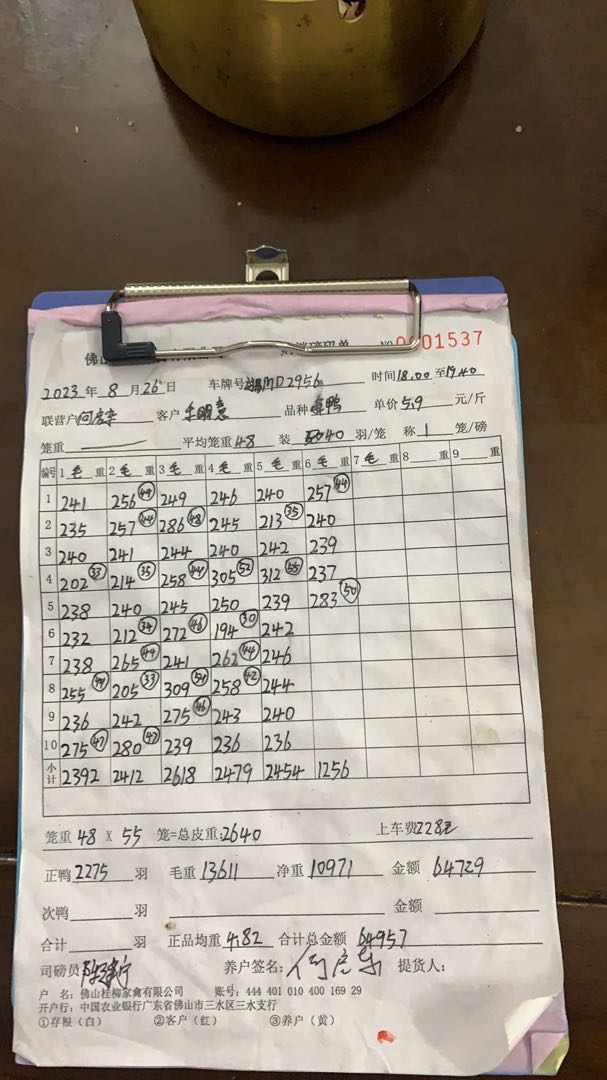 佛山 销磅码单 NO 0001537
2023年8月26日 车牌号 MD2956 时间18.00至19.40
联营户 何 客户 品种 鸭 单价5.9元/斤
笼重 平均笼重48 装 40羽/笼 称1笼/磅
编号 1毛重 2毛重 3毛重 4毛重 5毛重 6毛重 7毛重 8重 9重
1 241 256(44) 249 246 240 257(44)
2 235 257(44) 286(48) 245 213(35) 240
3 240 241 244 240 242 239
4 202(33) 214(35) 258(44) 305(52) 312(55) 237
5 238 240 245 250 239 283(50)
6 232 212(34) 272(46) 194(30) 242
7 238 265(44) 241 262(44) 246
8 255(44) 205(33) 309(54) 258(42) 244
9 236 242 275(46) 243 240
10 275(47) 280(47) 239 236 236
小计 2392 2412 2618 2479 2454 1256
笼重48X55笼=总皮重:2640 上车费228元
正鸭2275羽 毛重13611 净重10971 金额64729
次鸭 羽 金额
合计 羽 正品均重4.82 合计总金额64957
司磅员 养户签名: 何 提货人:
户 名: 佛山桂柳家禽有限公司 账号: 444 401 010 400 169 29
开户行: 中国农业银行广东省佛山市三水区三水支行
①存根(白) ②客户(红) ③养户(黄)